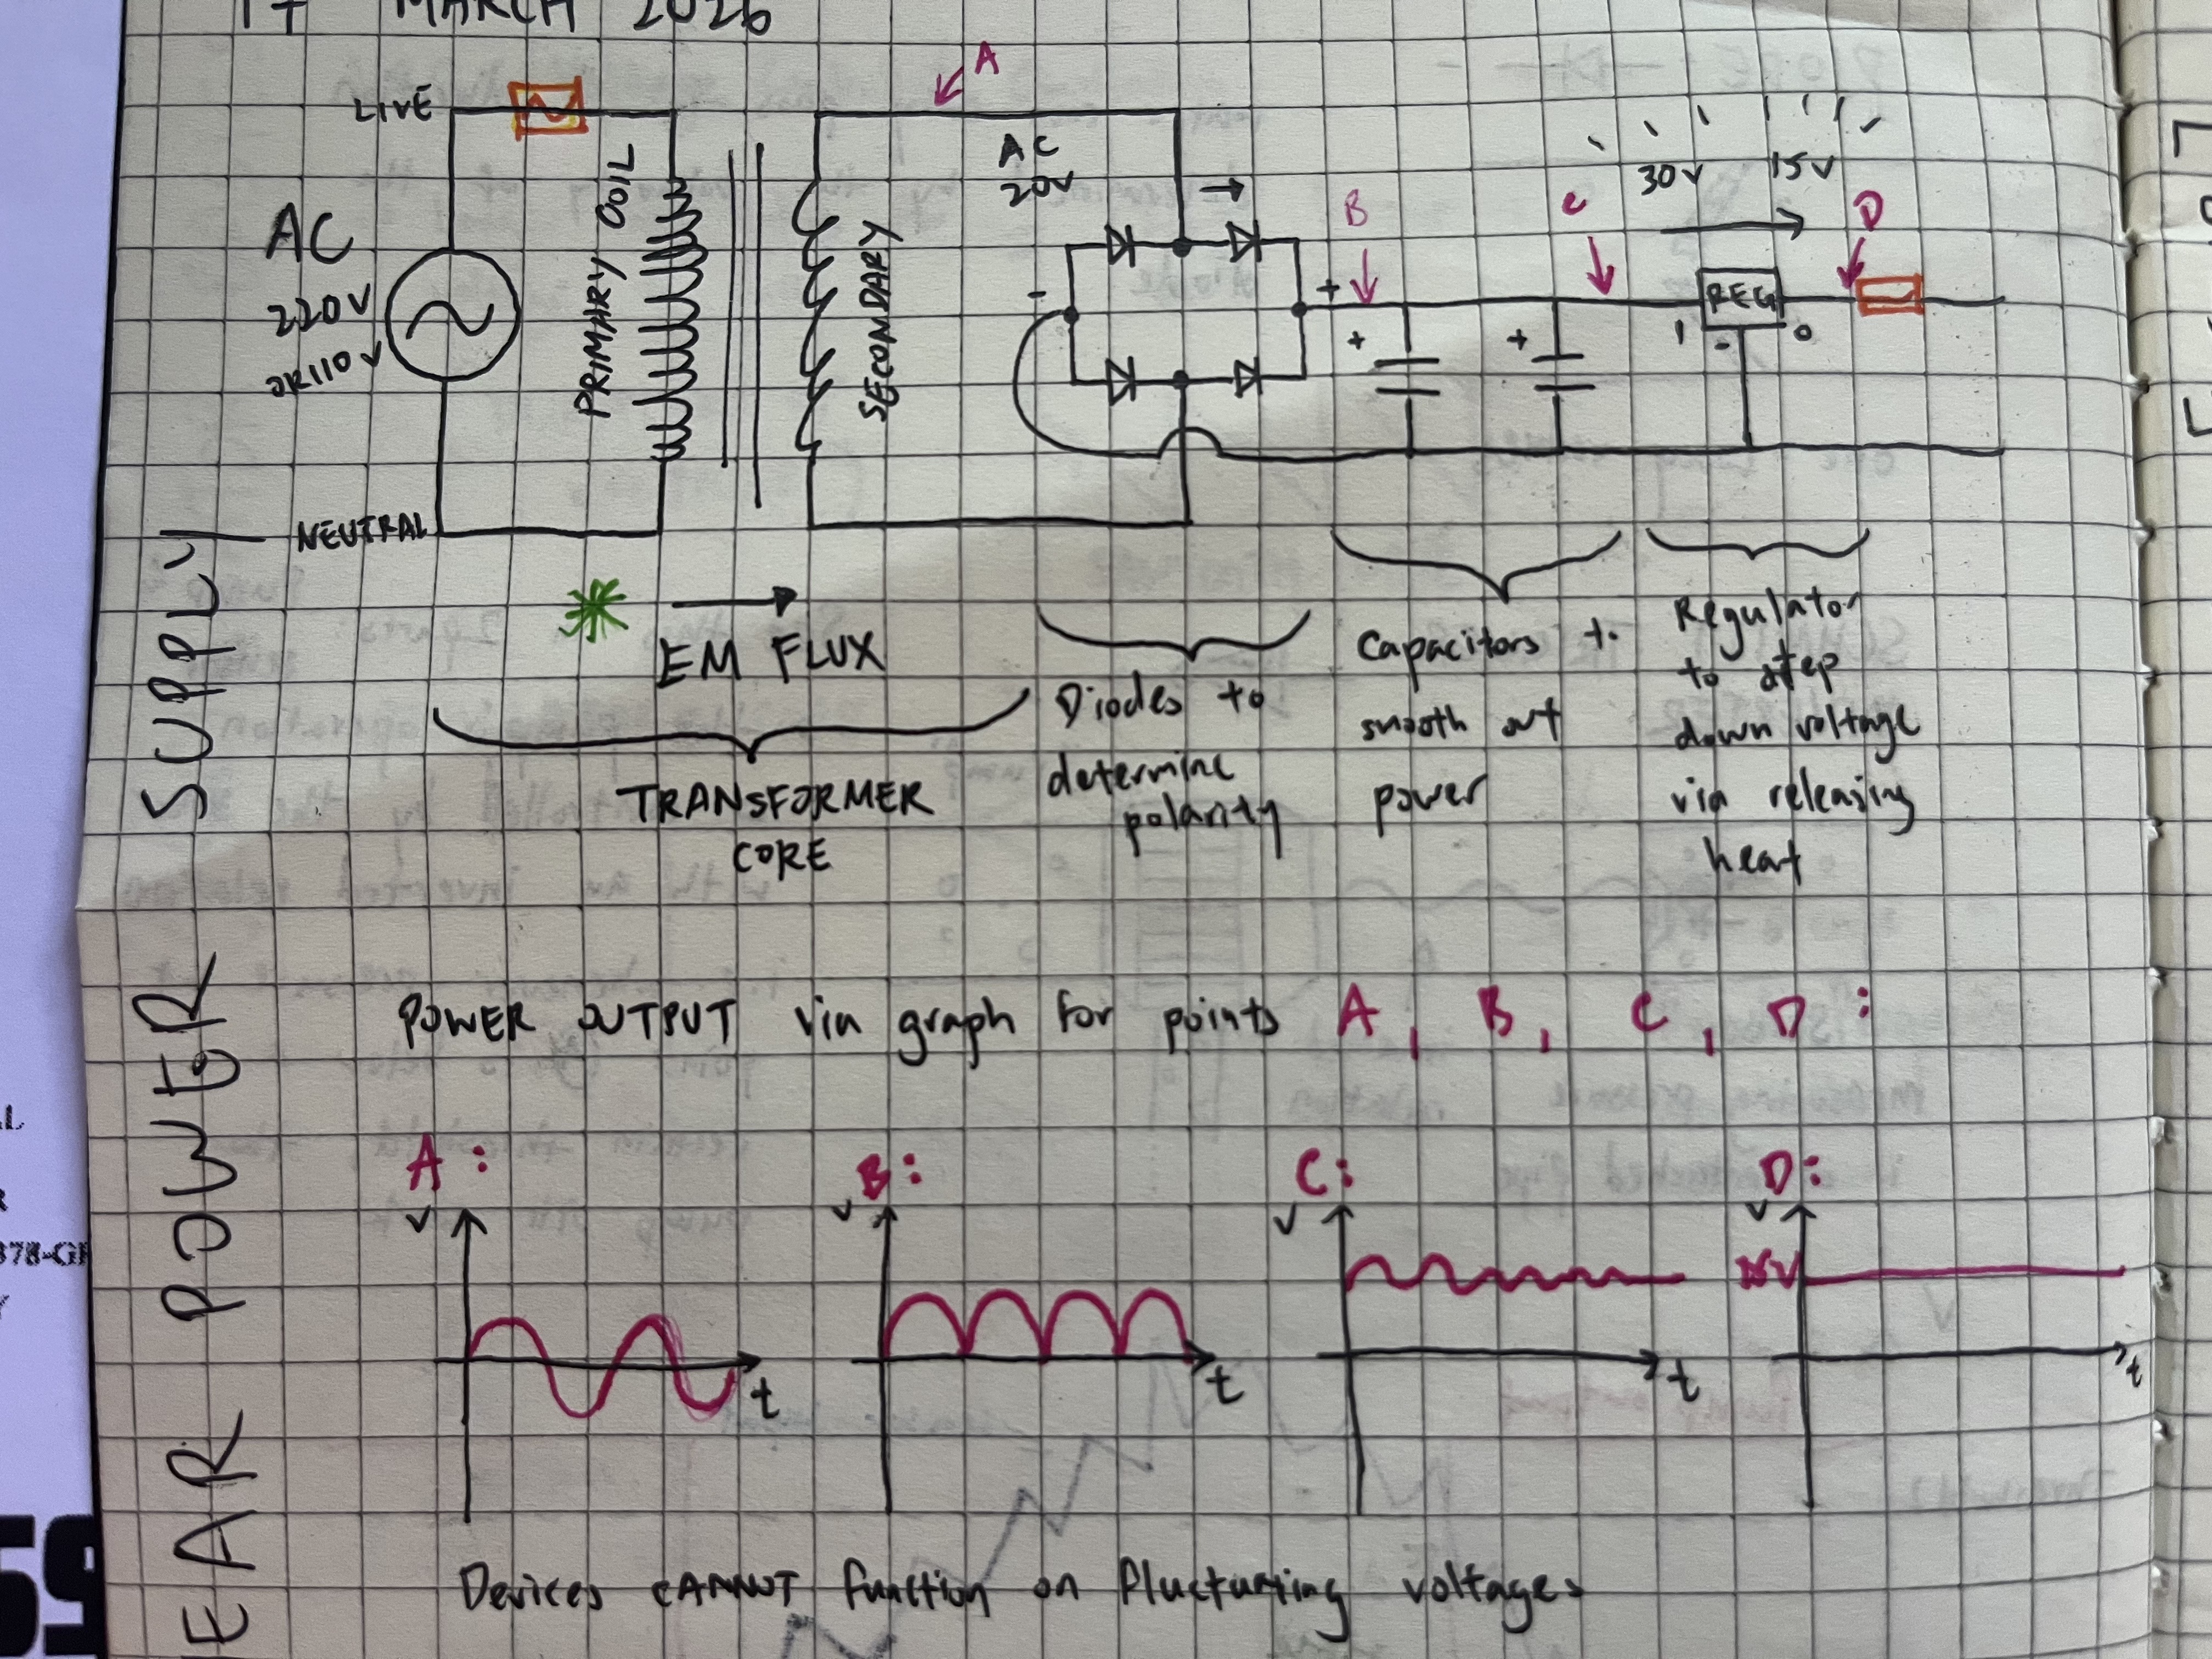 17 MARCH 2026
LIVE
A
AC
220V
OR 110V
PRIMARY COIL
SECONDARY
AC
20V
- +
B
C
30V 15V
D
REG
+ +
1 - 0
NEUTRAL
EM FLUX
TRANSFORMER
CORE
Diodes to
determine
polarity
Capacitors to
smooth out
power
Regulator
to step
down voltage
via releasing
heat
LINEAR POWER SUPPLY
POWER OUTPUT via graph for points A, B, C, D :
A :
V
t
B :
V
t
C :
V
t
D :
V
15V
t
Devices CANNOT function on fluctuating voltages